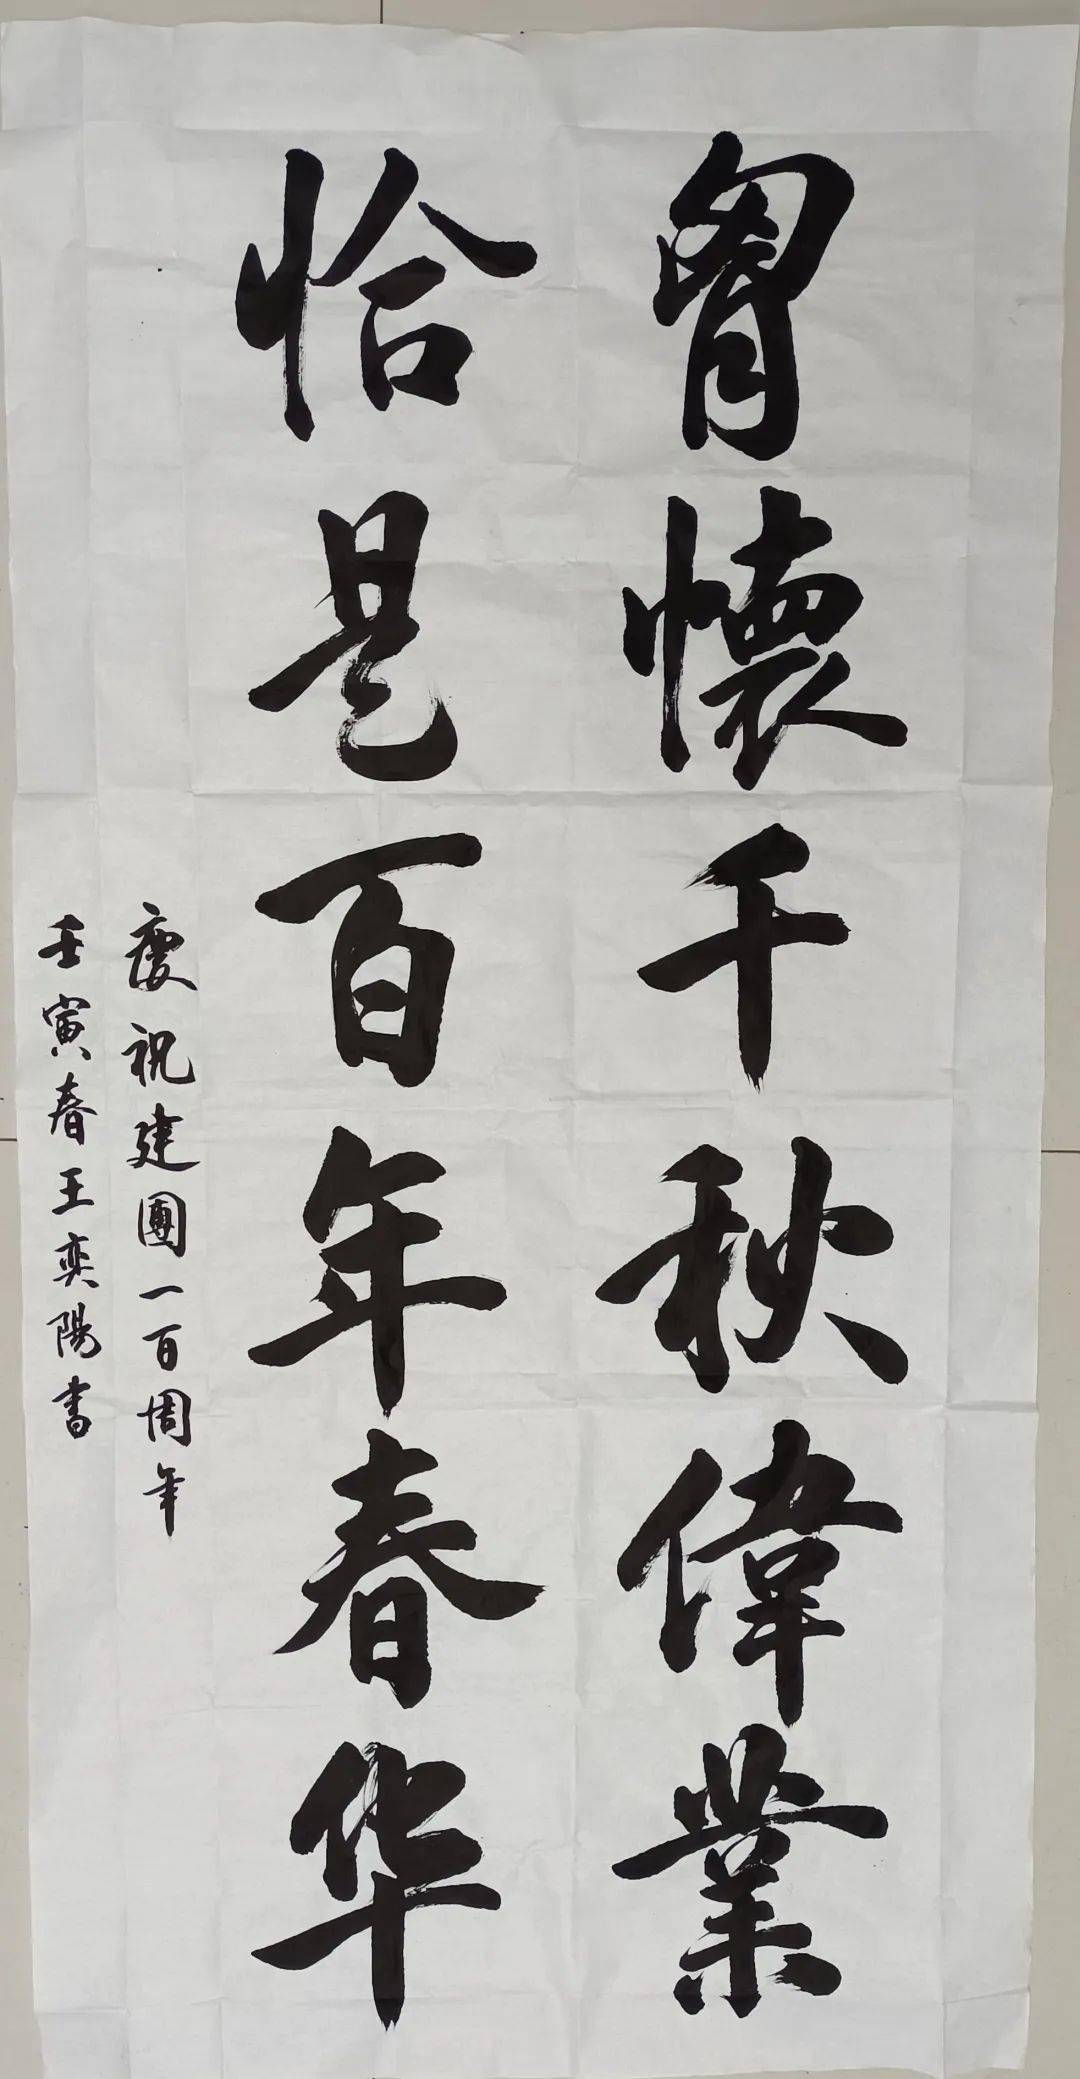 胷懷千秋偉業
恰是百年春华
慶祝建團一百周年
壬寅春王奕陽書